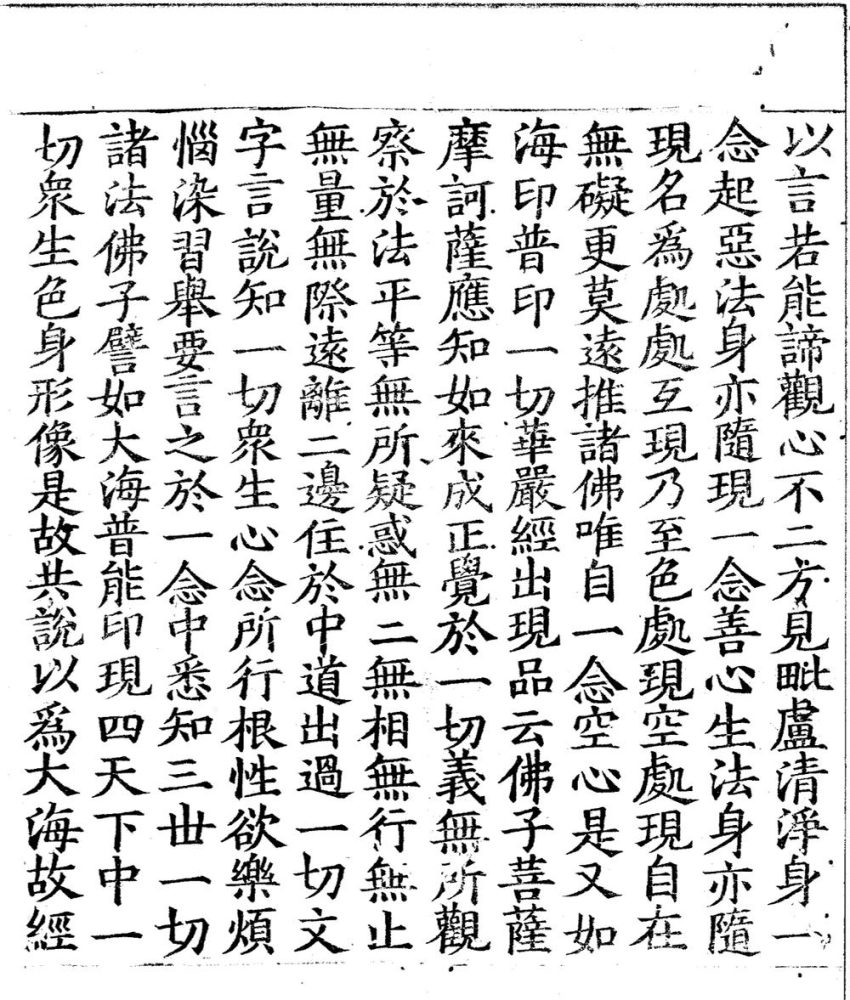 以言若能諦觀心不二方見毗盧清淨身一
念起惡法身亦隨現一念善心生法身亦隨
現名爲處處互現乃至色處現空處現自在
無礙更莫遠推諸佛唯自一念空心是又如
海印普印一切華嚴經出現品云佛子菩薩
摩訶薩應知如來成正覺於一切義無所觀
察於法平等無所疑惑無二無相無行無止
無量無際遠離二邊住於中道出過一切文
字言說知一切衆生心念所行根性欲樂煩
惱染習舉要言之於一念中悉知三世一切
諸法佛子譬如大海普能印現四天下中一
切衆生色身形像是故共說以爲大海故經